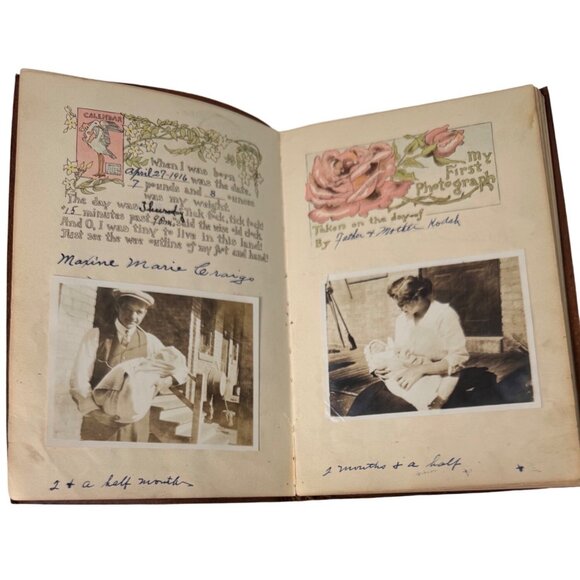 CALENDAR
When I was born
April 27-1916 was the date,
7 pounds and 8 ounces
was my weight.
The day was Thursday Tick tuck, tick, tock!
15 minutes past 9 am, said the wise old clock.
And O, I was tiny to live in this land!
Just see the wee outline of my foot and hand!
Maxine Marie Craigo
2 & a half months
My
First
Photograph
Taken on the day of
By Father & Mother Kodak
2 months & a half